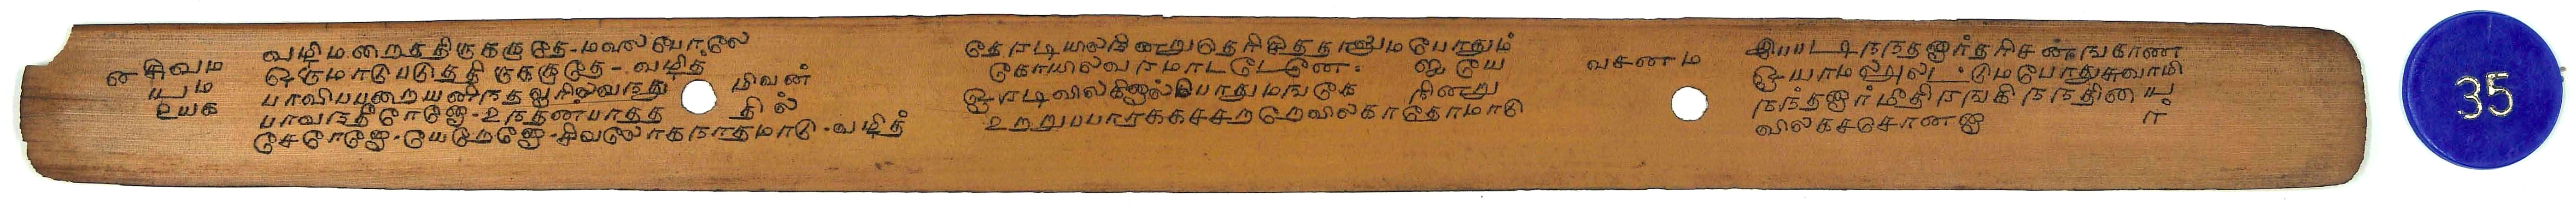 சிவம
யும
உயக
வழிமறைத்திருக்குதே-மலைபோலே
ஒருமாடுபடுத்திருக்குதே-வழித்
பாவிப்பறையனிந்தவூரில்வந்து மிவன்
பாவந்தீரேனோ-உந்தன்பாதத தில்
சேரேனோ-யேறேனோ-சிவலோகநாதமாடு-வழித்
தேரடியிலநின்றுதெரிசித்தாலும்போதும்
கோயில்வரமாட்டேனே. ஐயே
ஓரடிவிலகினால்போதுமங்கே நின்று
உற்றுப்பாரக்கச்சற்றேவிலகாதோமாடு
வசனம
இப்படிநந்தனார்தரிசனங்காண
ஓயாமலழுதிடும்போதுசுவாமி
நந்தனார்மீதிரங்கிநந்தியை
விலகசசொனனா ர்
35